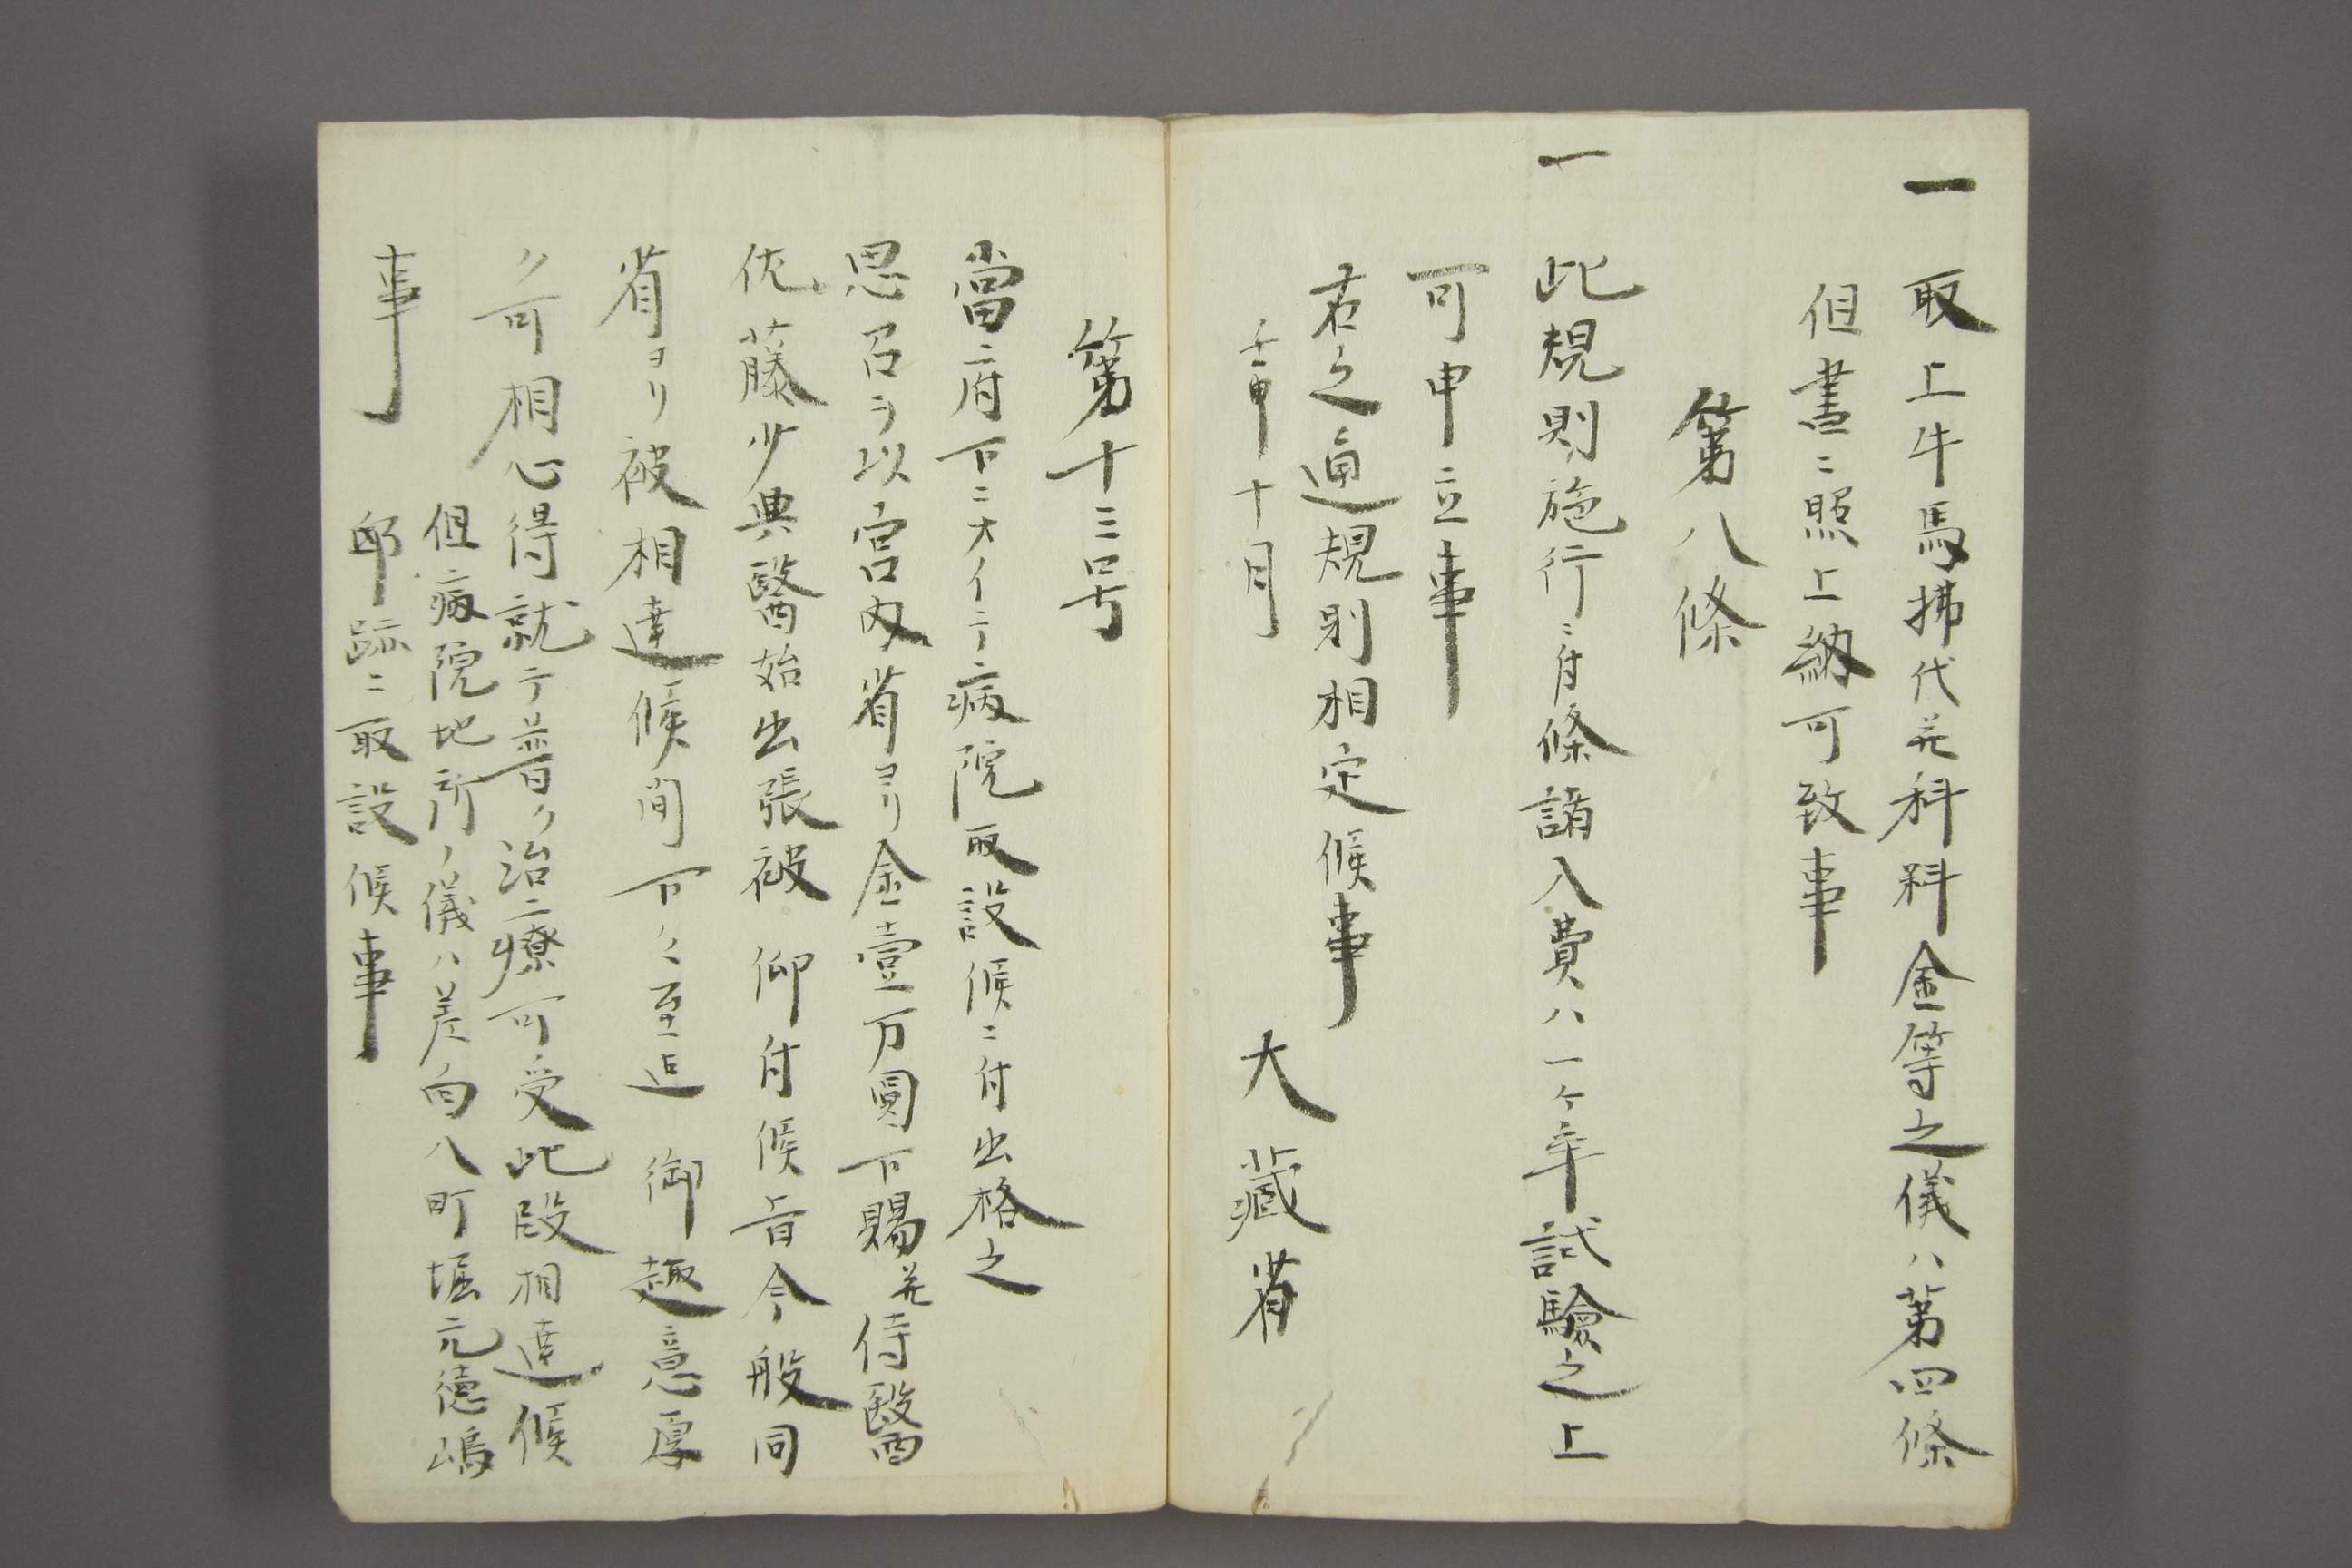 一 取上牛馬拂代并科料金等之儀ハ第四條
但書ニ照上納可致事
第八條
一 此規則施行ニ付條諸入費ハ一ケ年試驗之上
可申立事
右之通規則相定候事
壬申十月 大藏省
第十三号
當府下ニオイテ病院取設候ニ付出格之
思召ヲ以宮内省ヨリ金壹万圓下賜并侍醫
佐藤少典醫始出張被 仰付候旨今般同
省ヨリ被相達候間下々至迄 御趣意厚
ク可相心得就テ普ク治療可受此段相達候
事
但病院地所ノ儀ハ差向八町堀元德嶋
邸跡ニ取設候事